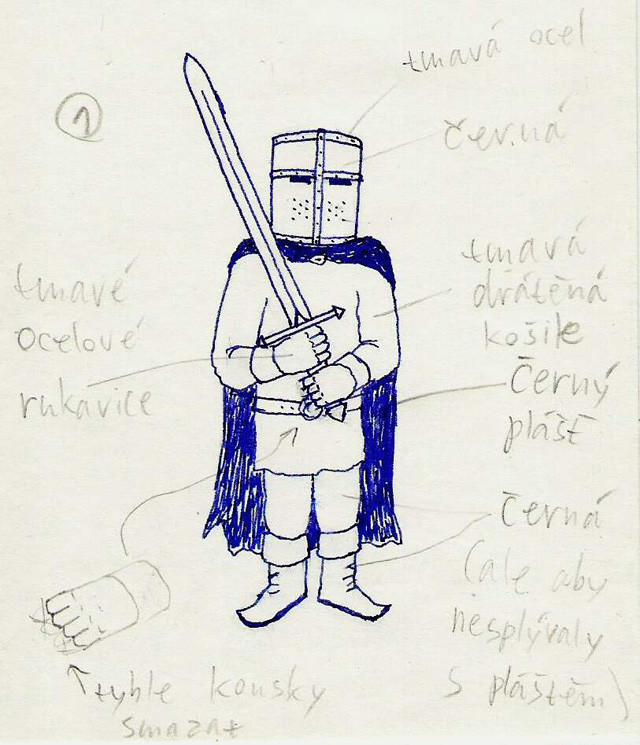 1
tmavá ocel
černá
tmavá
drátěná
košile
tmavé
ocelové
rukavice
Černý
plášť
černá
(ale aby
nesplývaly
s pláštěm)
tyhle kousky
smazat